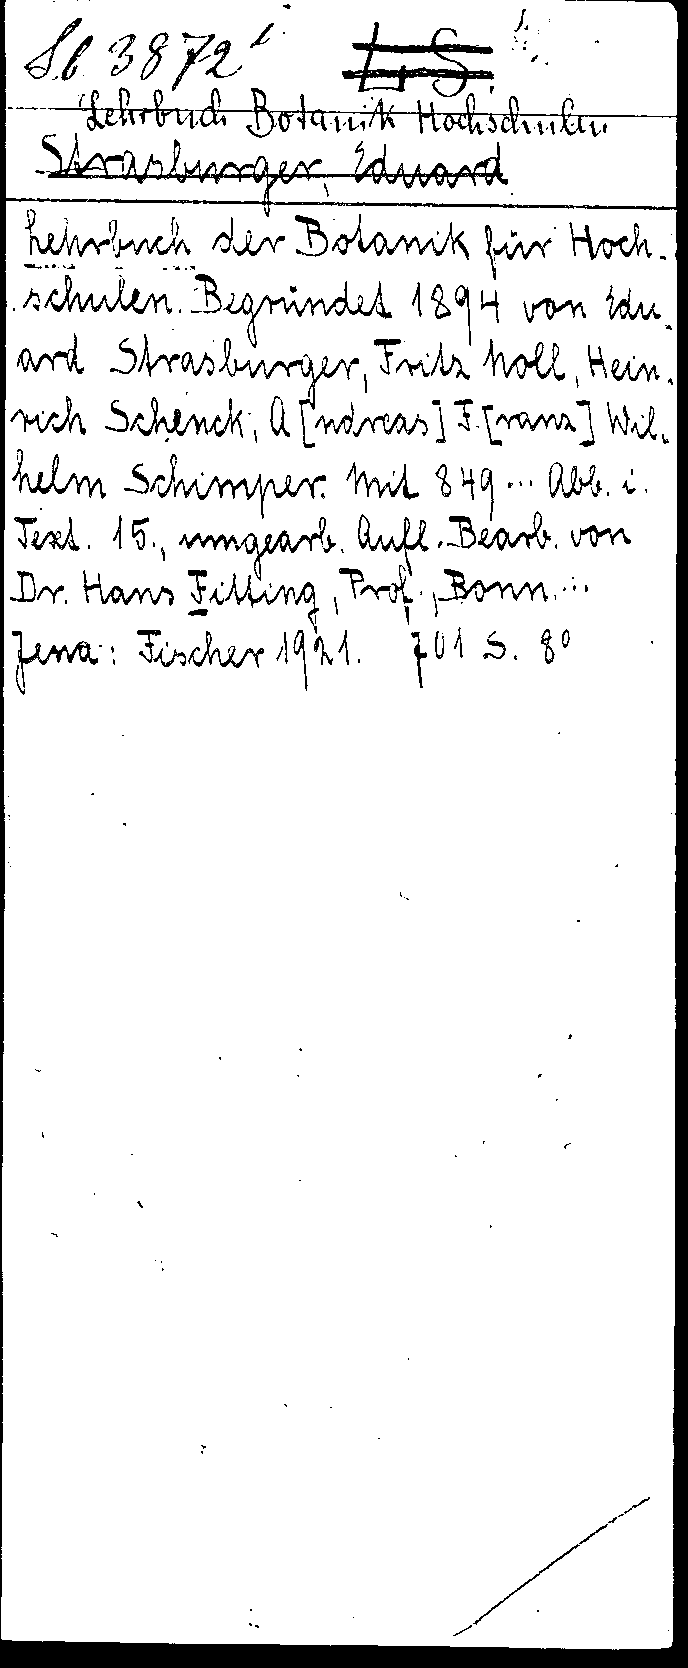 Sb 3872 i L.S.
Lehrbuch Botanik Hochschulen
Strasburger, Eduard
Lehrbuch der Botanik für Hoch-
schulen. Begründet 1894 von Edu-
ard Strasburger, Fritz Noll, Hein-
rich Schenck, A[ndreas] F.[ranz] Wil-
helm Schimper. Mit 849 ... Abb. i.
Text. 15., umgearb. Aufl. Bearb. von
Dr. Hans Fitting, Prof., Bonn ...
Jena: Fischer 1921. 701 S. 8°